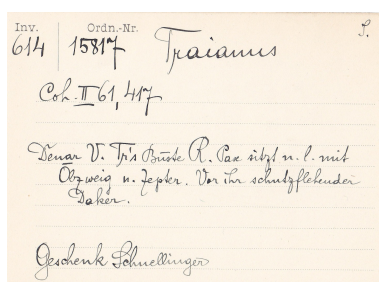 Inv. Ordn.-Nr. S.
614 15817 Traianus
Coh. II 61,417
Denar V. Tr's Büste R. Pax sitzt n. l. mit
Ölzweig u. Zepter. Vor ihr schutzflehender
Daker.
Geschenk Schnellinger